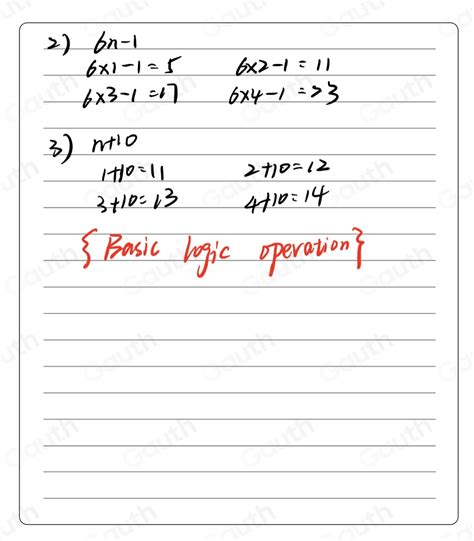 2) 6n-1
6×1-1=5 6×2-1=11
6×3-1=17 6×4-1=23
3) n+10
1+10=11 2+10=12
3+10=13 4+10=14
{Basic logic operation}